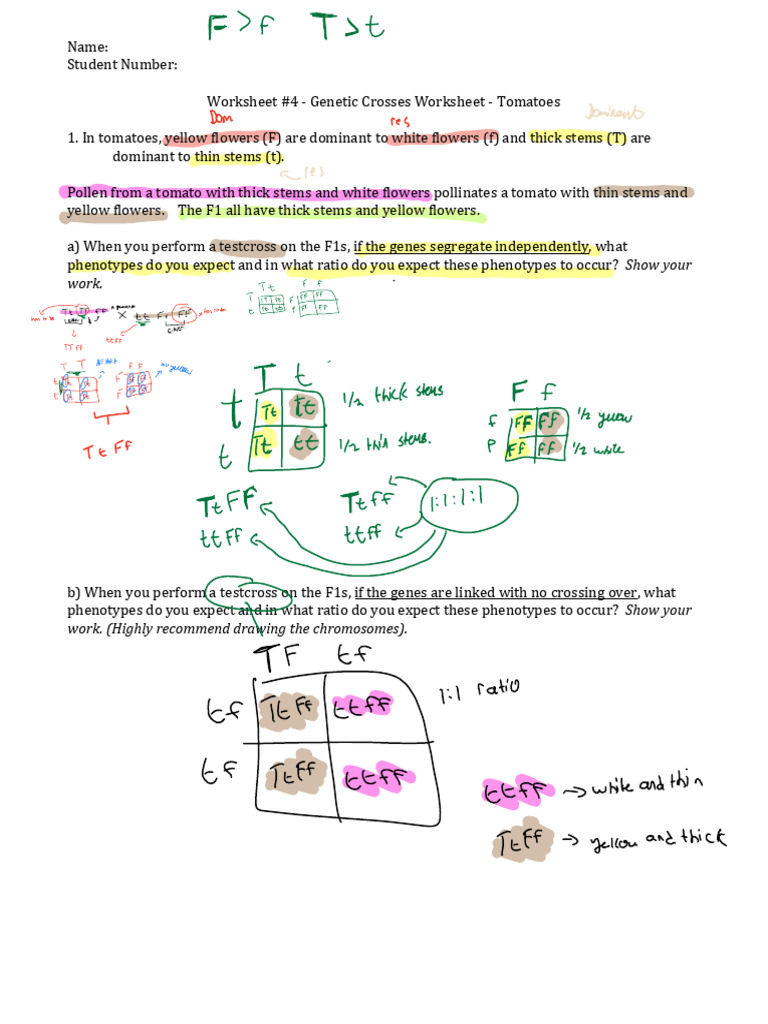 F > f T > t
Name:
Student Number:
Worksheet #4 - Genetic Crosses Worksheet - Tomatoes
Dom res Dominant
1. In tomatoes, yellow flowers (F) are dominant to white flowers (f) and thick stems (T) are
dominant to thin stems (t).
res
Pollen from a tomato with thick stems and white flowers pollinates a tomato with thin stems and
yellow flowers. The F1 all have thick stems and yellow flowers.
a) When you perform a testcross on the F1s, if the genes segregate independently, what
phenotypes do you expect and in what ratio do you expect these phenotypes to occur? Show your
work.
T t F f
T t
T t
t
t
Tt Tt
Tt tt
1/2 thick stems
1/2 thin stems.
F f
f
Ff ff
Ff ff
1/2 yellow
1/2 white
Tt Ff
TtFF Ttff 1:1:1:1
ttFf ttff
b) When you perform a testcross on the F1s, if the genes are linked with no crossing over, what
phenotypes do you expect and in what ratio do you expect these phenotypes to occur? Show your
work. (Highly recommend drawing the chromosomes).
TF tf
tf TtFf ttff 1:1 ratio
tf TtFf ttff
ttff → white and thin
TtFf → yellow and thick